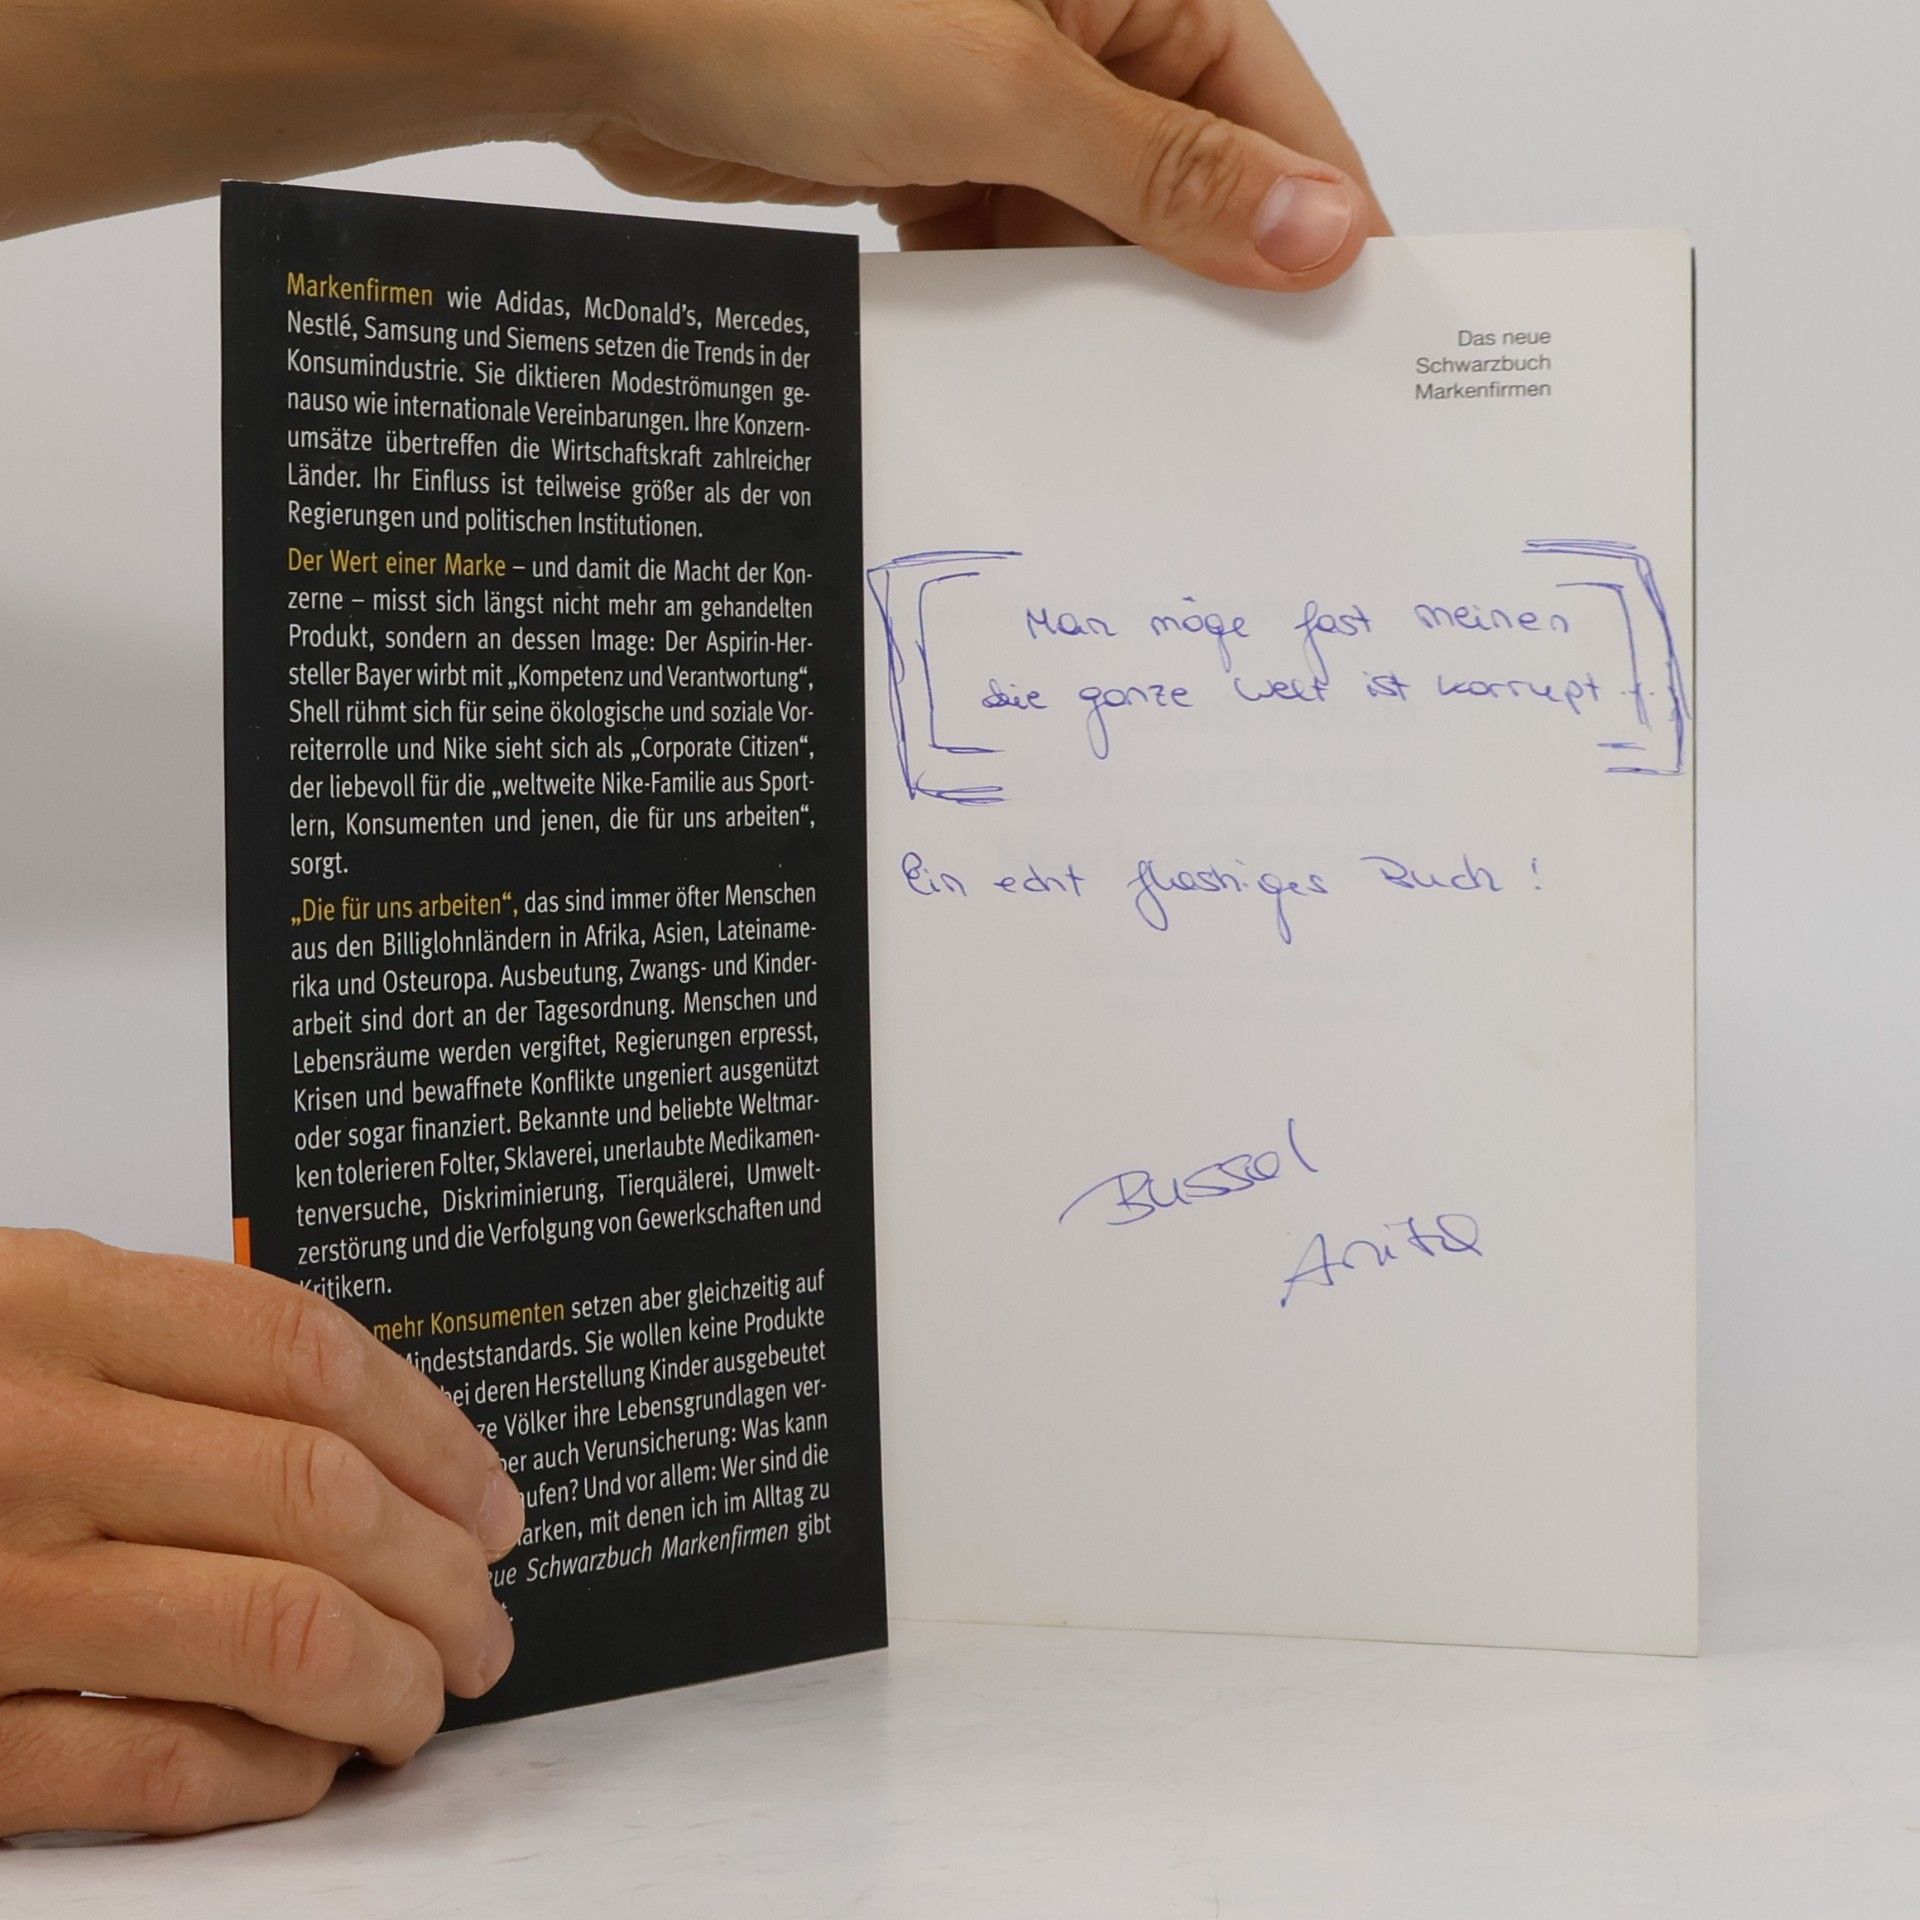 Markenfirmen wie Adidas, McDonald's, Mercedes,
Nestlé, Samsung und Siemens setzen die Trends in der
Konsumindustrie. Sie diktieren Modeströmungen ge-
nauso wie internationale Vereinbarungen. Ihre Konzern-
umsätze übertreffen die Wirtschaftskraft zahlreicher
Länder. Ihr Einfluss ist teilweise größer als der von
Regierungen und politischen Institutionen.
Der Wert einer Marke – und damit die Macht der Kon-
zerne – misst sich längst nicht mehr am gehandelten
Produkt, sondern an dessen Image: Der Aspirin-Her-
steller Bayer wirbt mit „Kompetenz und Verantwortung“,
Shell rühmt sich für seine ökologische und soziale Vor-
reiterrolle und Nike sieht sich als „Corporate Citizen“,
der liebevoll für die „weltweite Nike-Familie aus Sport-
lern, Konsumenten und jenen, die für uns arbeiten“,
sorgt.
„Die für uns arbeiten“, das sind immer öfter Menschen
aus den Billiglohnländern in Afrika, Asien, Lateiname-
rika und Osteuropa. Ausbeutung, Zwangs- und Kinder-
arbeit sind dort an der Tagesordnung. Menschen und
Lebensräume werden vergiftet, Regierungen erpresst,
Krisen und bewaffnete Konflikte ungeniert ausgenützt
oder sogar finanziert. Bekannte und beliebte Weltmar-
ken tolerieren Folter, Sklaverei, unerlaubte Medikamen-
tenversuche, Diskriminierung, Tierquälerei, Umwelt-
zerstörung und die Verfolgung von Gewerkschaften und
Kritikern.
mehr Konsumenten setzen aber gleichzeitig auf
Mindeststandards. Sie wollen keine Produkte
bei deren Herstellung Kinder ausgebeutet
ze Völker ihre Lebensgrundlagen ver-
ber auch Verunsicherung: Was kann
aufen? Und vor allem: Wer sind die
arken, mit denen ich im Alltag zu
ue Schwarzbuch Markenfirmen gibt
t.
Das neue
Schwarzbuch
Markenfirmen
Man möge fast meinen
die ganze Welt ist korrupt
Ein echt Buch!
Bussal
Anita